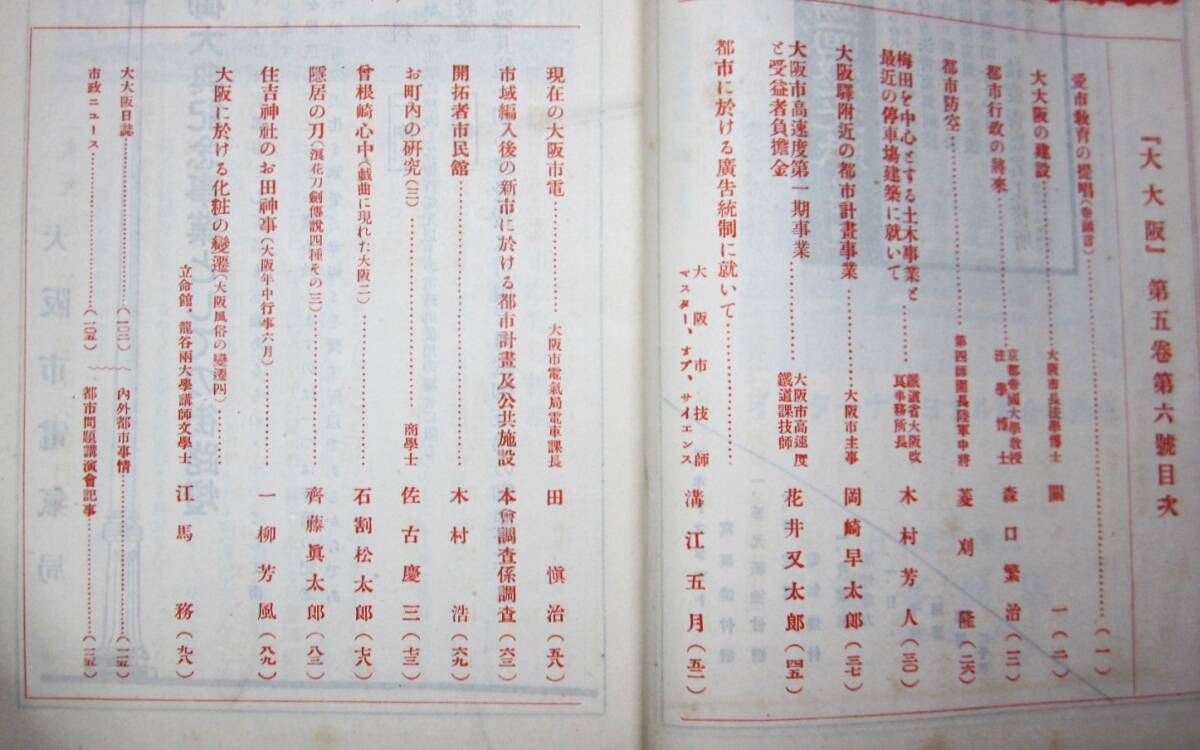 『大大阪』第五卷第六號目次
愛市敎育の提唱(卷頭言)………(一)
大大阪の建設………大阪市長法學博士 關 一(二)
都市行政の將來………京都帝國大學敎授法學博士 森口繁治(一二)
都市防空………第四師團長陸軍中將 菱刈 隆(二六)
梅田を中心とする土木事業と
最近の停車塲建築に就いて………鐵道省大阪改良事務所長 木村芳人(三〇)
大阪驛附近の都市計畫事業………大阪市主事 岡崎早太郎(三七)
大阪市高速度第一期事業
と受益者負擔金………大阪市高速度鐵道課技師 花井又太郎(四五)
都市に於ける廣告統制に就いて………大阪市技師マスター、オブ、サイエンス 溝江五月(五二)
現在の大阪市電………大阪市電氣局電車課長 田 愼治(五八)
市域編入後の新市に於ける都市計畫及公共施設 本會調査係調査(六三)
開拓者市民館………木村 浩(六九)
お町內の硏究(三)………商學士 佐古慶三(七三)
曾根崎心中(戲曲に現れた大阪二)………石割松太郎(七八)
隱居の刀(浪花刀劍傳說四種その三)………齊藤眞太郎(八三)
住吉神社のお田神事(大阪年中行事六月)………一柳芳風(八九)
大阪に於ける化粧の變遷(大阪風俗の變遷四)
立命館 龍谷兩大學講師文學士 江馬 務(九八)
大大阪日誌………(一〇三)
內外都市事情………(一一五)
市政ニュース………(一〇五)
都市問題講演會記事………(一二五)
御大典記念事業としての街路燈
大阪市電氣局